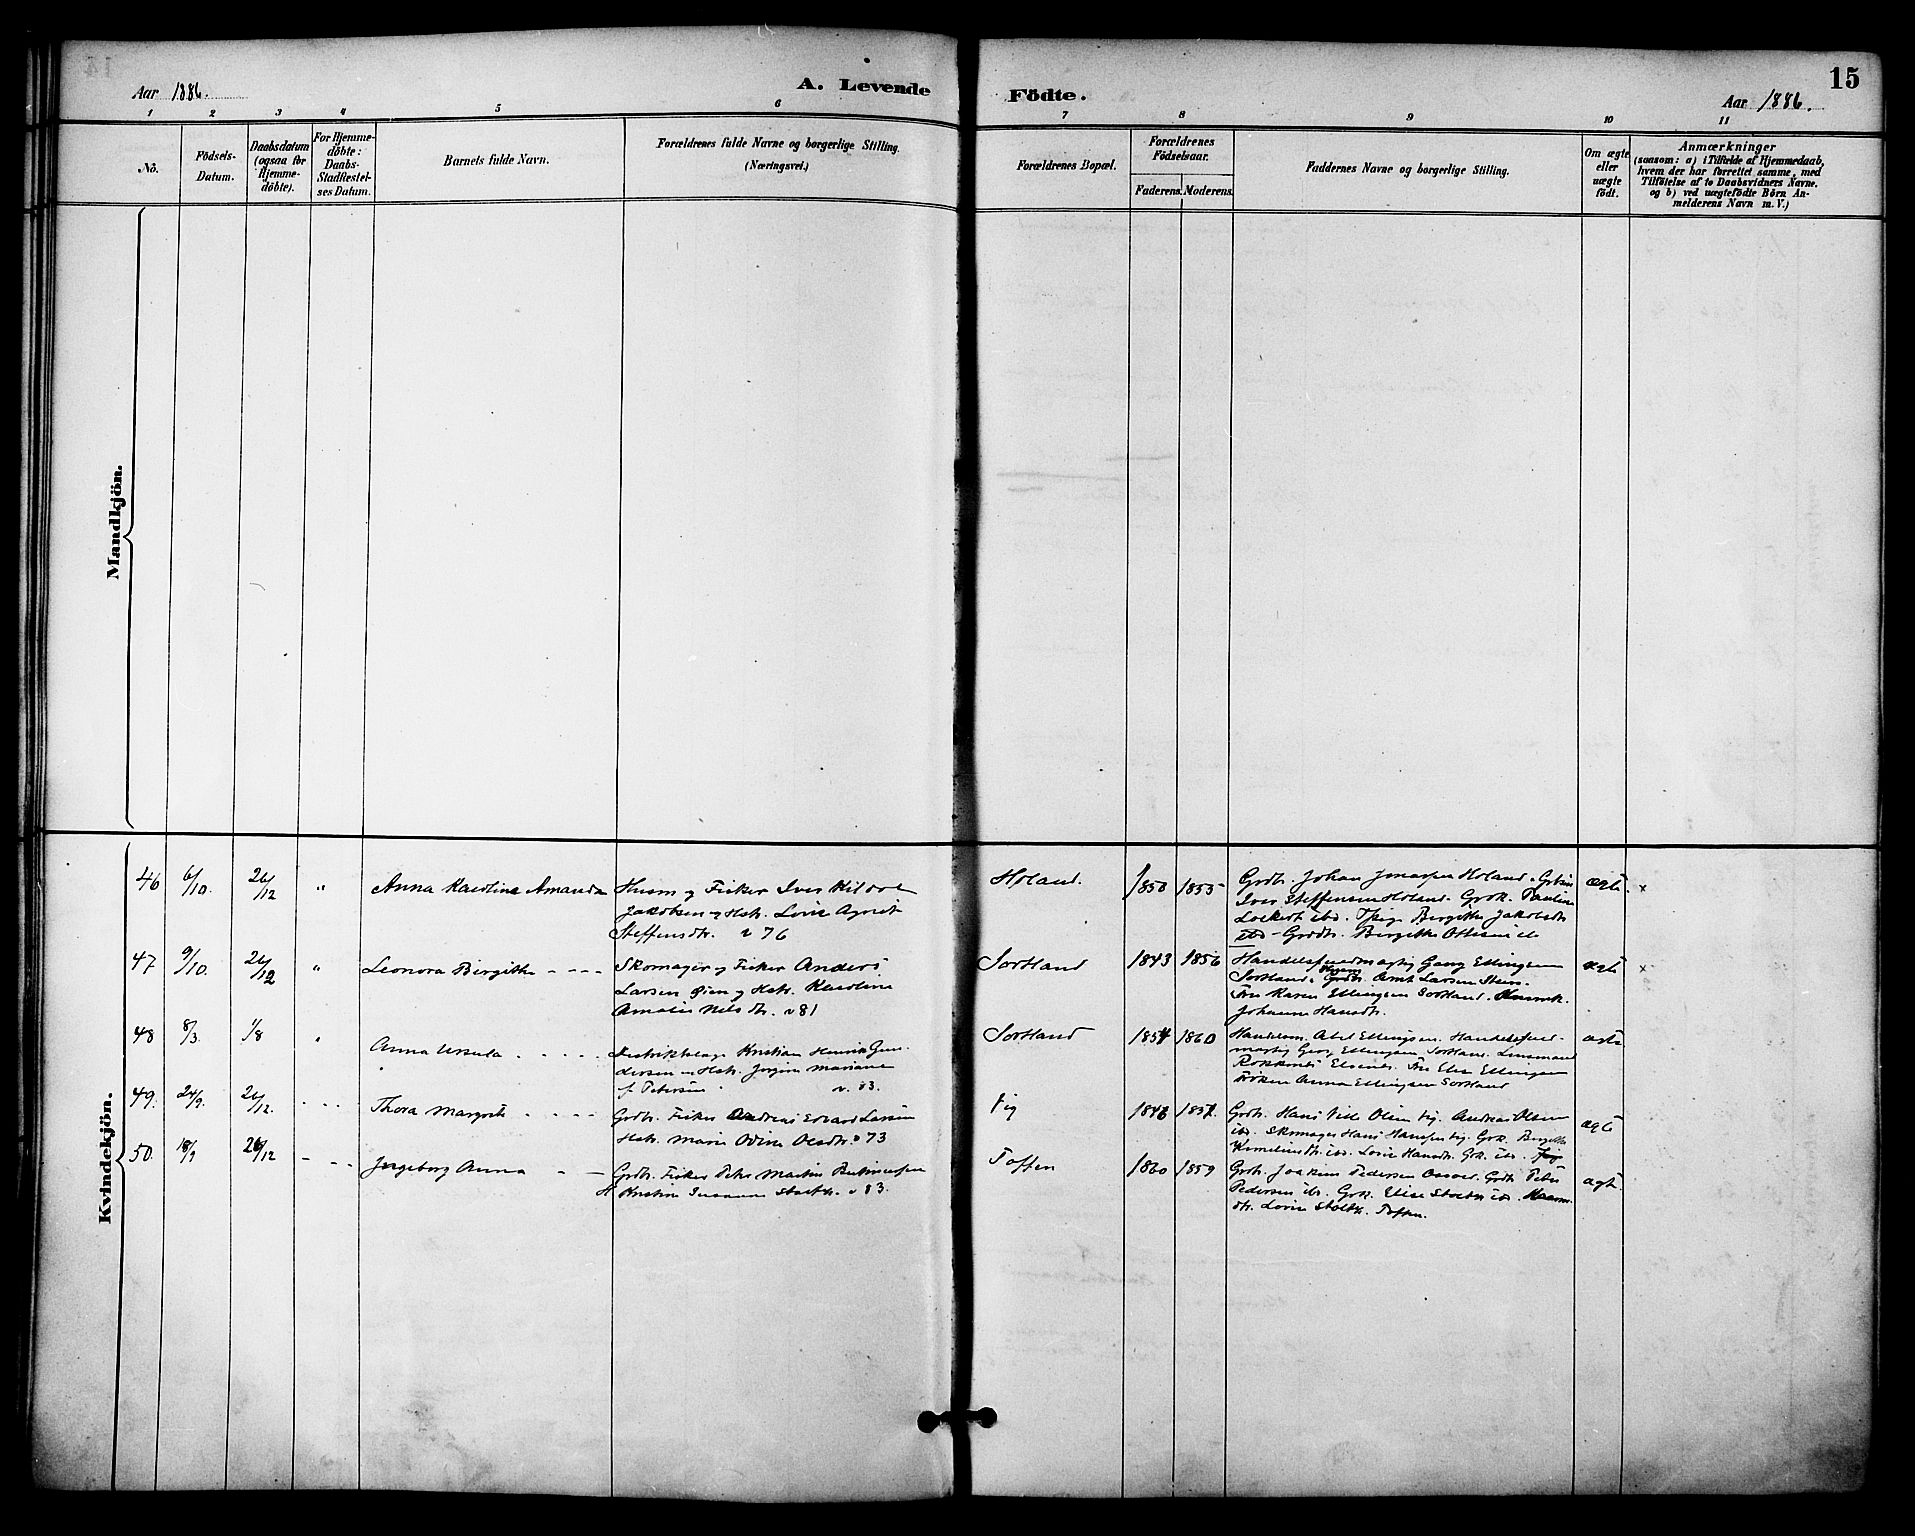 Aar 1886.
A. Levende Födte.
15
Aar 1886.
1 2 3 4 5 6 7 8 9 10 11
No.
Födsels-Datum.
Daabsdatum (ogsaa for Hjemmedöbte).
For Hjemmedöbte: Daabs-Stadfæstelses Datum.
Barnets fulde Navn.
Forældrenes fulde Navne og borgerlige Stilling. (Næringsvei.)
Forældrenes Bopæl.
Forældrenes Födselsaar.
Faderens. Moderens.
Faddernes Navne og borgerlige Stilling.
Om ægte eller uægte födt.
Anmærkninger
(saasom: a) i Tilfælde af Hjemmedaab,
hvem der har forrettet samme, med
Tilföielse af to Daabsvidners Navne.
og b) ved uægtefödte Börn An-
melderens Navn m. V.)
Mandkjön.
Kvindekjön.
46 6/10. 26/12 " Anna Karolina Amanda
Husm og Fisker Iver Kildal
Jakobsen og Hstr. Lovise
Steffensdtr. v 76
Holand. 1850 1855
Grdbr. Johan Holand.
Iver Steffensen Holand. Grk. Pauline
Lockert ibd. Pige Birgitte Jakobsdtr
ibd - Grddtr. Birgitte
ægte. x
47 9/10. 26/12 " Leonora Birgitte - - - -
Skomager og Fisker Anders
Larsen Øien og Hstr. Karoline
Amalie Nilsdtr. v 81
Sortland 1843 1856
Handelsfuldmægtig Georg Ellingsen
Sortland. Arnt Larsen
Fru Karen Ellingsen Sortland.
Johanna Hansdtr.
ægte x
48 8/3. 1/8 " Anna Ursula - - - -
Distriktslæge Kristian Henrik Gun-
dersen og Hstr. Jørgine Mariane
f. Petersen v. 83.
Sortland 1854 1860
Handelsm. Abel Ellingsen. Handelsfuld-
mægtig Georg Ellingsen Sortland. Lensmand
Fru Elen Ellingsen
Frøken Anna Ellingsen Sortland
ægte
49. 24/9. 26/12. - - - Thora Margrete - - - -
Grdbr. Fisker Andreas Edvard Larsen
Hstr. Marie Olsdtr. v 73
Vig 1846 1851.
Grdbr. Hans Olsen Vig. Andreas Olsen
ibd. Skomager Hans Hansen Vig. Grk. Birgitte
Korneliusdtr. ibd. Lovise Hansdtr. Grk. ibd.
ægte
50. 18/9 26/12 - - - Ingeborg Anna - -
Grdbr. Fisker Peter Martin
H Kristine Susanna v 83.
Toften 1860 1859
Grdbr. Joakim Pedersen Grdbr. Peter
Pedersen ibd. Grk. Elise ibd.
dtr. Lovise Toften.
ægte.